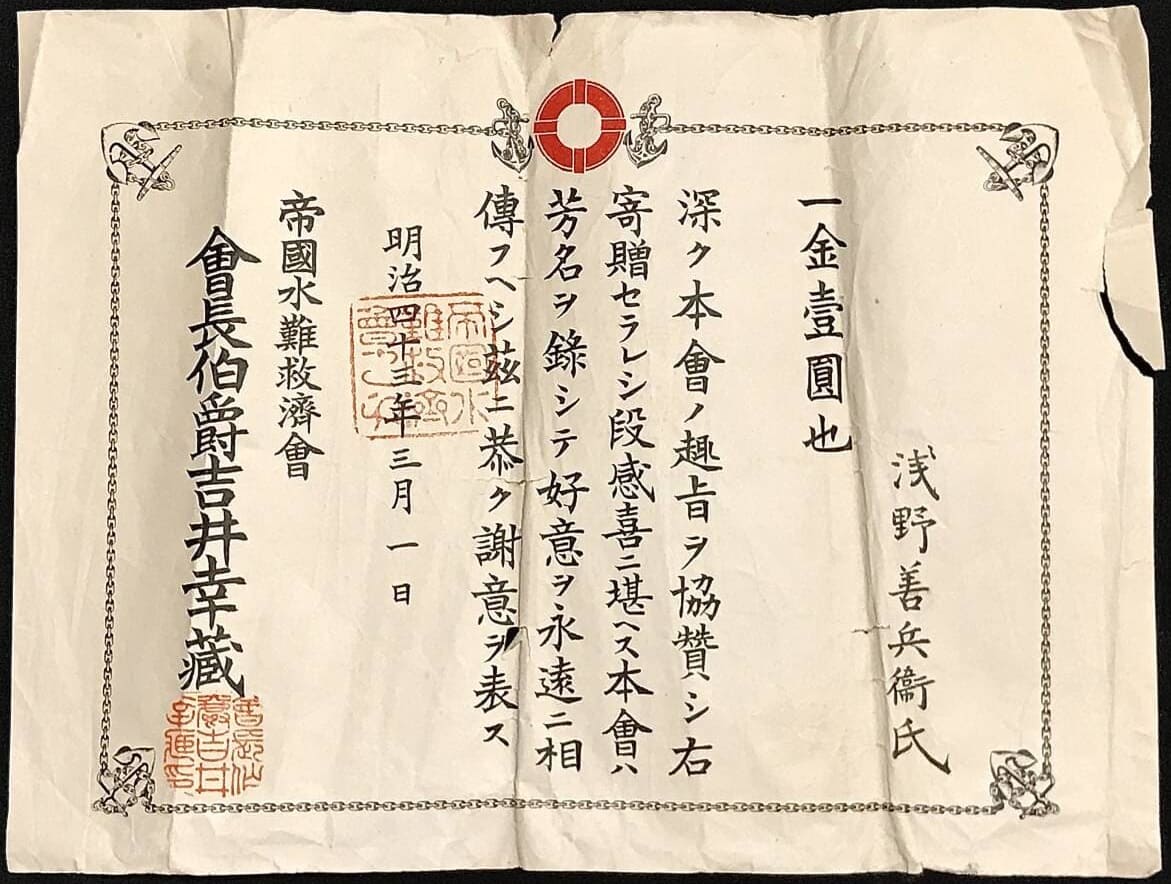 浅野善兵衞氏
一金壹圓也
深ク本會ノ趣旨ヲ協贊シ右
寄贈セラレシ段感喜ニ堪ヘス本會ハ
芳名ヲ錄シテ好意ヲ永遠ニ相
傳フヘシ茲ニ恭ク謝意ヲ表ス
明治四十三年三月一日
帝國水難救濟會
會長伯爵吉井幸藏